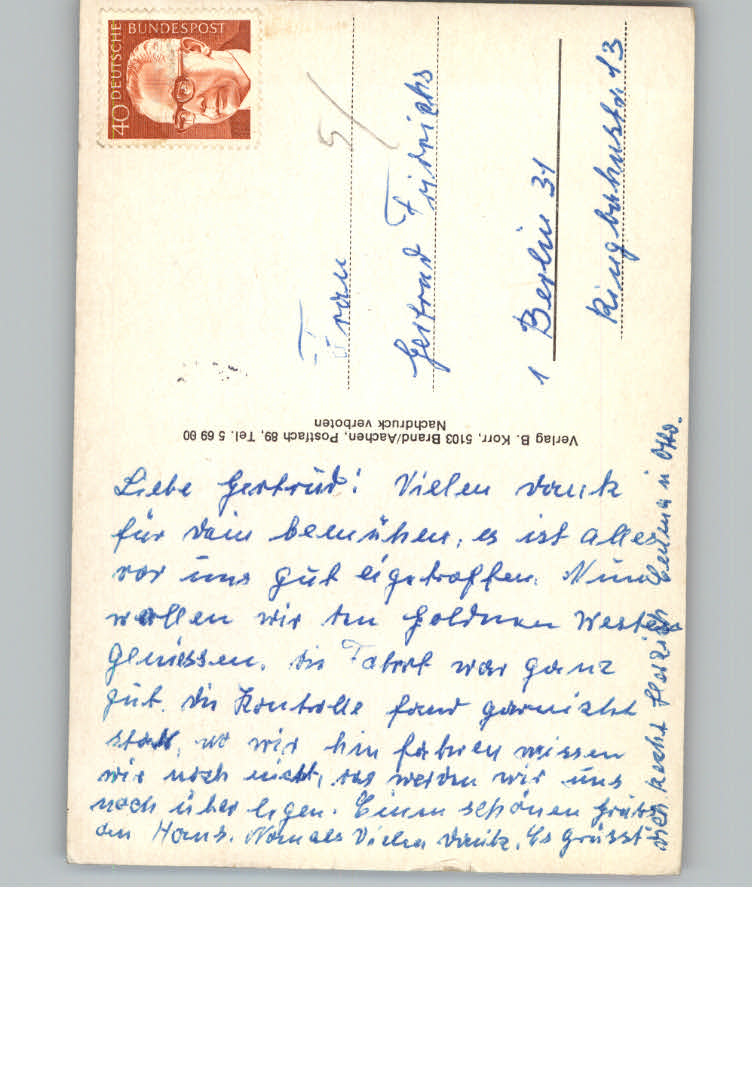 DEUTSCHE BUNDESPOST
40
Frau
Gertrud Fridrichs
1 Berlin 31
Ringbahnstr 13
Verlag B. Korr, 5103 Brand/Aachen, Postfach 89, Tel. 5 69 00
Nachdruck verboten
Liebe Gertrud! Vielen dank
für dein bemühen, es ist alles
vor uns gut eigetroffen. Nun
wollen wir den Goldnen Westen
geniessen. die Fahrt war ganz
gut. die Kontrolle fand garnicht
statt, wo wir hin fahren wissen
wir noch nicht, das werden wir uns
noch über legen. Einen schönen Gruss
an Hans. Nomals Vielen dank. Es grüsst
dich recht Herzlich in Otto.